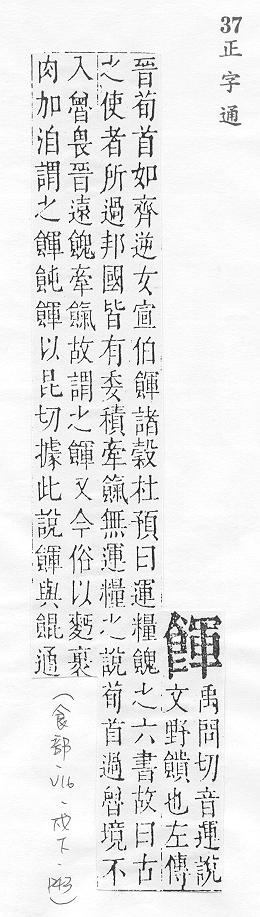 37 正字通
餫
禹問切音運說
文野饋也左傳
晉荀首如齊逆女宣伯餫諸穀杜預曰運糧餽之六書故曰古
之使者所過邦國皆有委積牽餼無運糧之說荀首過魯境不
入魯畏晉遠餽牽餼故謂之餫又今俗以麪裹
肉加洎謂之餫飩餫以昆切據此說餫與餛通
(食部、V16、戌下、